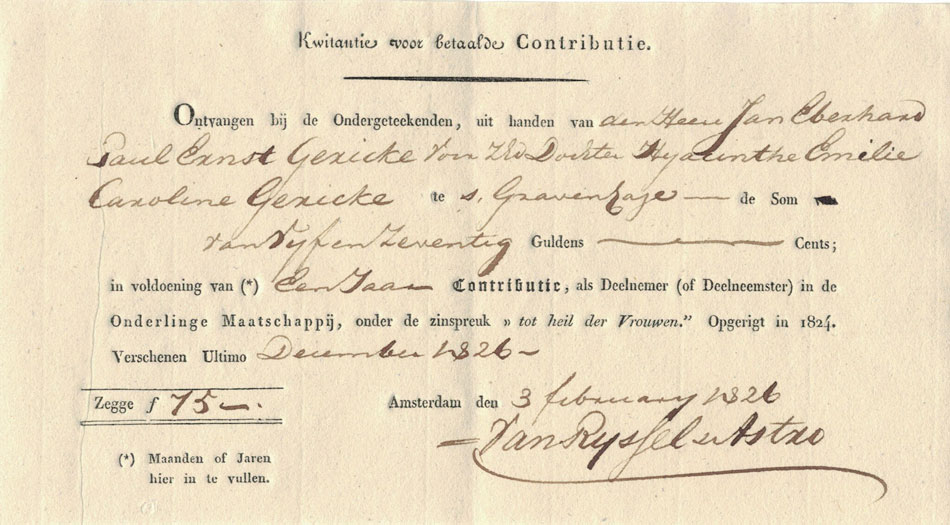 Kwitantie voor betaalde Contributie.
Ontvangen bij de Ondergeteekenden, uit handen van den Heer Jan Eberhard
Paul Ernst Gericke voor Dochter Hyacinthe Emilie
Caroline Gericke te s, Gravenhage — de Som
van Vijf en Zeventig Guldens — Cents;
in voldoening van (*) Een Jaar Contributie, als Deelnemer (of Deelneemster) in de
Onderlinge Maatschappij, onder de zinspreuk » tot heil der Vrouwen.” Opgerigt in 1824.
Verschenen Ultimo December 1826 –
Zegge f 75 –.
Amsterdam den 3 february 1826
Van Ryssel & Astro
(*) Maanden of Jaren
hier in te vullen.